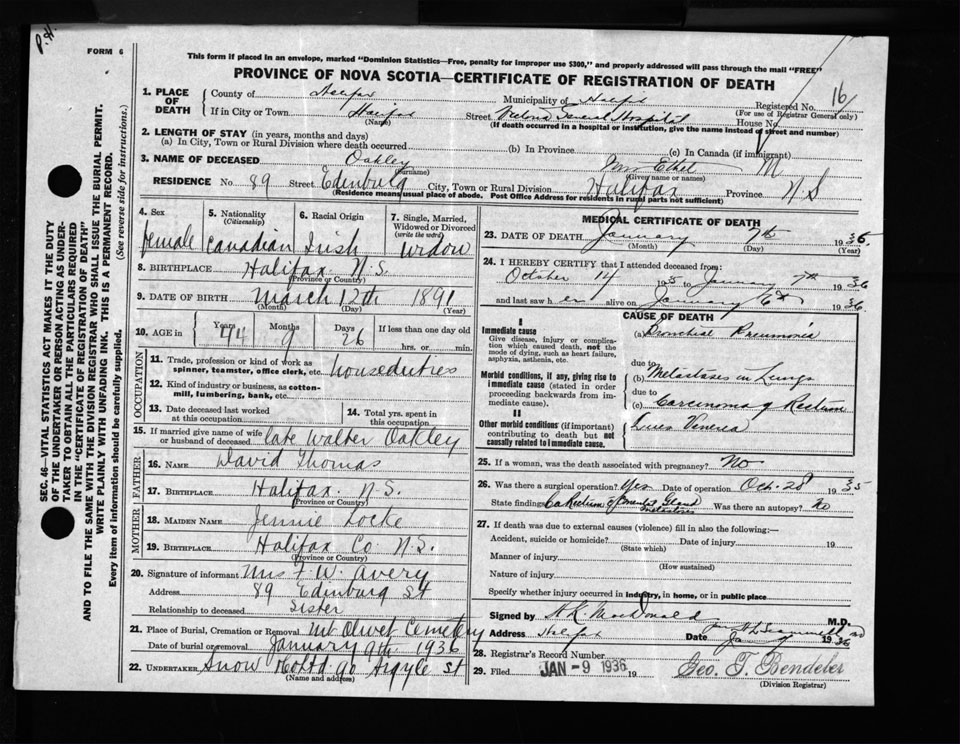 P.H.
FORM 6
This form if placed in an envelope, marked "Dominion Statistics—Free, penalty for improper use $300," and properly addressed will pass through the mail "FREE"
PROVINCE OF NOVA SCOTIA—CERTIFICATE OF REGISTRATION OF DEATH
SEC. 46—VITAL STATISTICS ACT MAKES IT THE DUTY
OF THE UNDERTAKER OR PERSON ACTING AS UNDER-
TAKER TO OBTAIN ALL THE PARTICULARS REQUIRED
IN THE "CERTIFICATE OF REGISTRATION OF DEATH"
AND TO FILE THE SAME WITH THE DIVISION REGISTRAR WHO SHALL ISSUE THE BURIAL PERMIT.
WRITE PLAINLY WITH UNFADING INK. THIS IS A PERMANENT RECORD.
Every item of information should be carefully supplied. (See reverse side for instructions.)
1. PLACE OF DEATH
County of Halifax Municipality of Halifax Registered No. 16
(For use of Registrar General only)
If in City or Town Halifax Street Victoria General Hospital House No.
(Name) (If death occurred in a hospital or institution, give the name instead of street and number)
2. LENGTH OF STAY (in years, months and days)
(a) In City, Town or Rural Division where death occurred (b) In Province (c) In Canada (if immigrant)
3. NAME OF DECEASED Oakley Mrs Ethel M
(Surname) (Given name or names)
RESIDENCE No. 89 Street Edinburg City, Town or Rural Division Halifax Province N S
(Residence means usual place of abode. Post Office Address for residents in rural parts not sufficient)
4. Sex female
5. Nationality (Citizenship) Canadian
6. Racial Origin Irish
7. Single, Married, Widowed or Divorced (write the word) widow
8. BIRTHPLACE Halifax N.S.
(Province or Country)
9. DATE OF BIRTH March 12th 1891
(Month) (Day) (Year)
10. AGE in Years 44 Months 9 Days 26 If less than one day old hrs. or min.
OCCUPATION
11. Trade, profession or kind of work as spinner, teamster, office clerk, etc. houseduties
12. Kind of industry or business, as cotton-mill, lumbering, bank, etc.
13. Date deceased last worked at this occupation
14. Total yrs. spent in this occupation
15. If married give name of wife or husband of deceased late Walter Oakley
FATHER
16. NAME David Thomas
17. BIRTHPLACE Halifax N.S.
(Province or Country)
MOTHER
18. MAIDEN NAME Jennie Locke
19. BIRTHPLACE Halifax Co N.S.
(Province or Country)
20. Signature of informant Mrs F. W. Avery
Address 89 Edinburg St
Relationship to deceased Sister
21. Place of Burial, Cremation or Removal Mt Olivet Cemetery
Date of burial or removal January 9th 1936
22. UNDERTAKER Snow & Co Ltd 90 Argyle St
(Name and address)
MEDICAL CERTIFICATE OF DEATH
23. DATE OF DEATH January 7th 1936.
(Month) (Day) (Year)
24. I HEREBY CERTIFY that I attended deceased from:
October 14 1935 to January 7th 1936
and last saw her alive on January 6th 1936.
CAUSE OF DEATH
I
Immediate cause
Give disease, injury or complication which caused death, not the mode of dying, such as heart failure, asphyxia, asthenia, etc.
(a) Bronchial Pneumonia
due to
Morbid conditions, if any, giving rise to immediate cause (stated in order proceeding backwards from immediate cause).
(b) Metastases in Lungs
due to
(c) Carcinoma of Rectum
II
Other morbid conditions (if important) contributing to death but not causally related to immediate cause.
Lues Venerea
25. If a woman, was the death associated with pregnancy? No
26. Was there a surgical operation? Yes Date of operation Oct. 28 1935
State findings Ca Rectum Gland metastases Was there an autopsy? No
27. If death was due to external causes (violence) fill in also the following:—
Accident, suicide or homicide? Date of injury 19
(State which)
Manner of injury
(How sustained)
Nature of injury
Specify whether injury occurred in industry, in home, or in public place
Signed by H. K. MacDonald M.D.
Address Halifax Date Jan 1936
28. Registrar's Record Number
29. Filed JAN -9 1936 19 Geo. T. Bendeler
(Division Registrar)